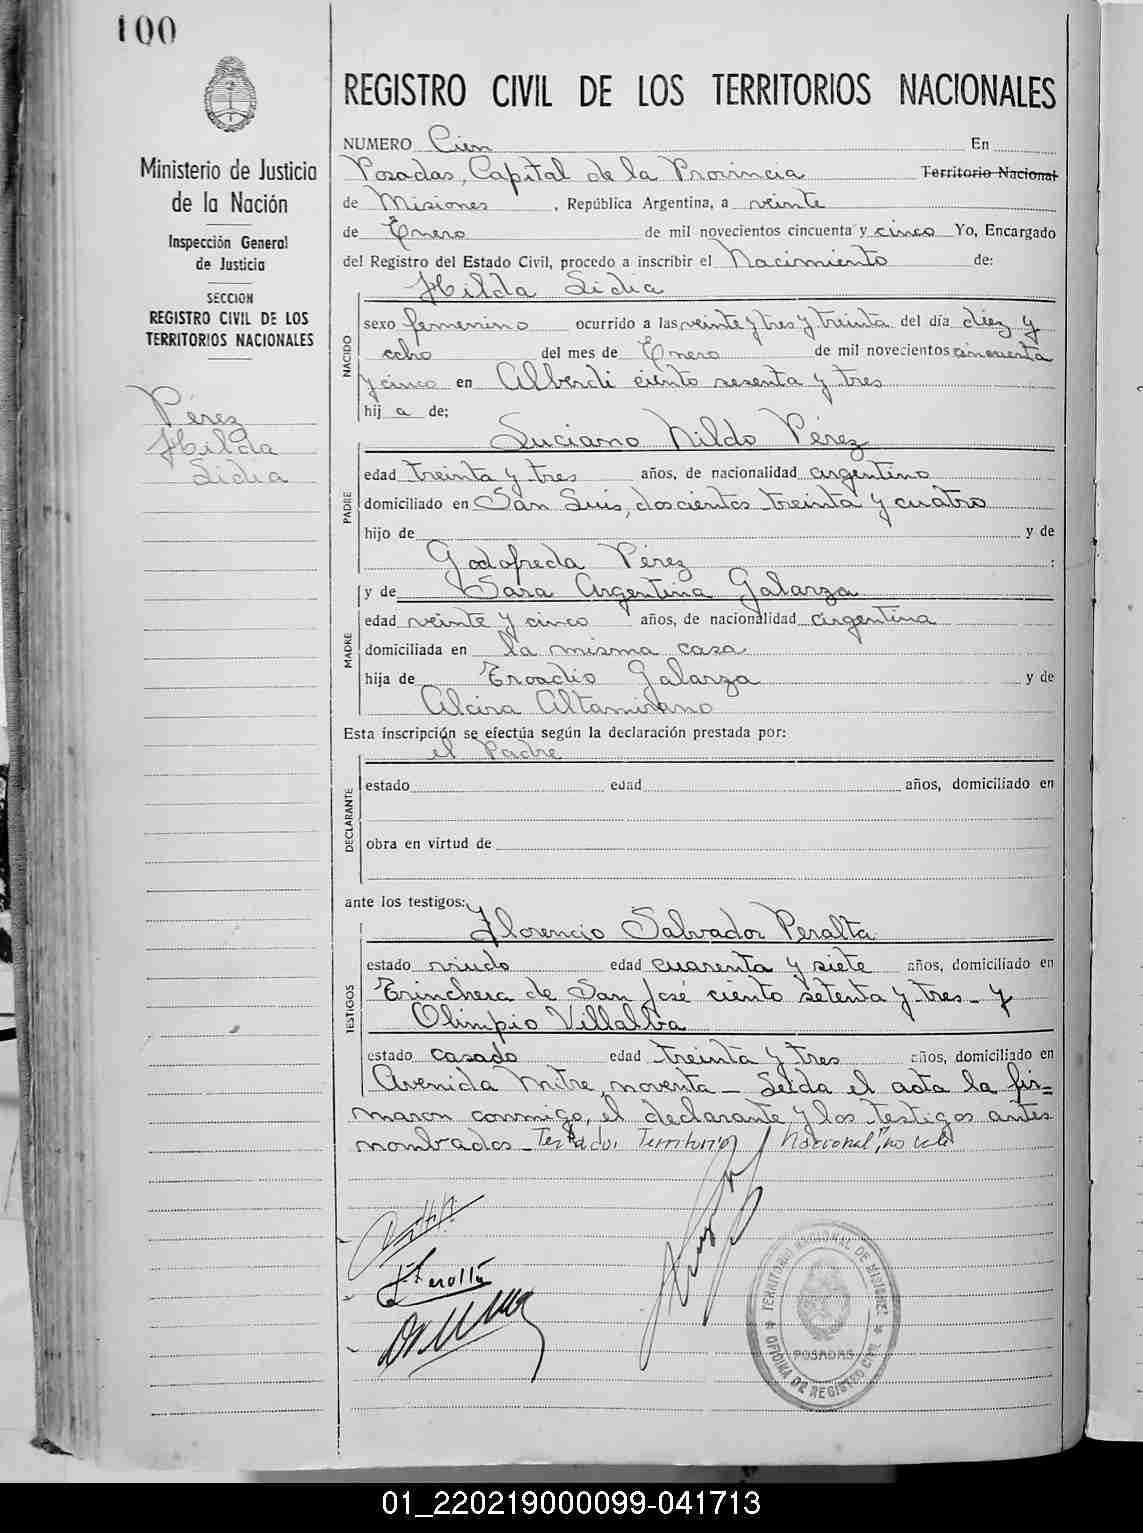 100
Ministerio de Justicia
de la Nación
Inspección General
de Justicia
SECCION
REGISTRO CIVIL DE LOS
TERRITORIOS NACIONALES
Pérez
Hilda
Lidia
REGISTRO CIVIL DE LOS TERRITORIOS NACIONALES
NUMERO Cien En
Posadas, Capital de la Provincia Territorio Nacional
de Misiones, República Argentina, a veinte
de Enero de mil novecientos cincuenta y cinco Yo, Encargado
del Registro del Estado Civil, procedo a inscribir el Nacimiento de:
Hilda Lidia
NACIDO
sexo femenino ocurrido a las veinte y tres y treinta del día diez y
ocho del mes de Enero de mil novecientos cincuenta
y cinco en Alberdi ciento sesenta y tres
hij a de:
Luciano Nildo Pérez
PADRE
edad treinta y tres años, de nacionalidad argentino
domiciliado en San Luis, doscientos treinta y cuatro
hijo de y de
Godofreda Pérez
y de Sara Argentina Galarza
MADRE
edad veinte y cinco años, de nacionalidad argentina
domiciliada en la misma casa
hija de Eroadio Galarza y de
Alcira Altamirano
Esta inscripción se efectúa según la declaración prestada por:
el Padre
DECLARANTE
estado edad años, domiciliado en
obra en virtud de
ante los testigos:
Florencio Salvador Peralta
TESTIGOS
estado viudo edad cuarenta y siete años, domiciliado en
Trinchera de San José ciento setenta y tres - y
Olimpio Villalba
estado casado edad treinta y tres años, domiciliado en
Avenida Mitre, noventa - Leída el acta la fir=
maron conmigo, el declarante y los testigos antes
nombrados - Testador Territorio Nacional, no vale
TERRITORIO NACIONAL DE MISIONES
POSADAS
OFICINA DE REGISTRO CIVIL
01_220219000099-041713